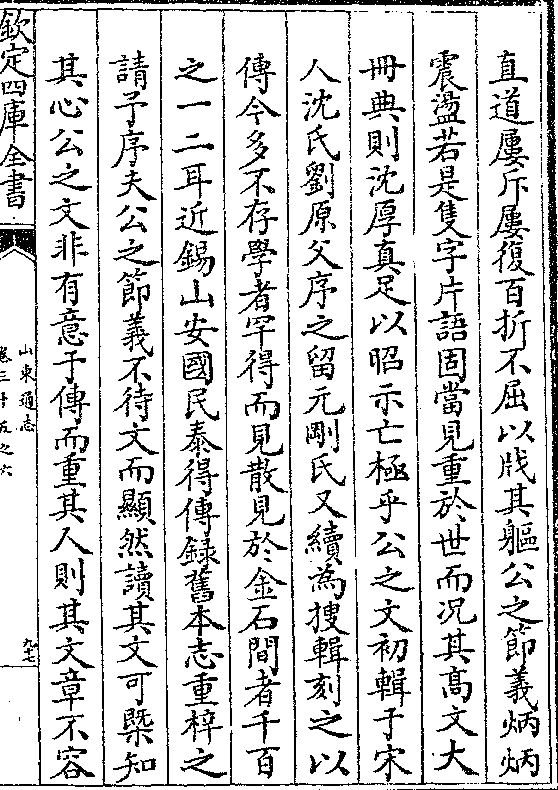 直道屢斥屢復百折不屈以戕其軀公之節義炳炳
震盪若是隻字片語固當見重於世而况其髙文大
冊典則沈厚真足以昭示亡極乎公之文初輯于宋
人沈氏劉原父序之留元剛氏又續為捜輯刻之以
傳今多不存學者罕得而見散見於金石間者千百
之一二耳近錫山安國民泰得傳錄舊本志重梓之
請予序夫公之節義不待文而顯然讀其文可槩知
其心公之文非有意于傳而重其人則其文章不容
欽定四庫全書
山東通志
卷三十五之六
九十七